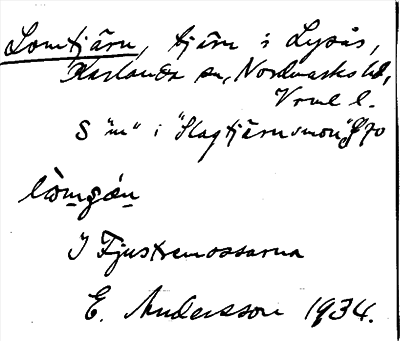 Lomtjärn, tjärn i Lysås,
Karlanda sn, Nordmarks hd,
Vrml l.
S "m" i "Slagtjärnsmon" 70
lòmgǽn
I Fjustremossarna
E. Andersson 1934.